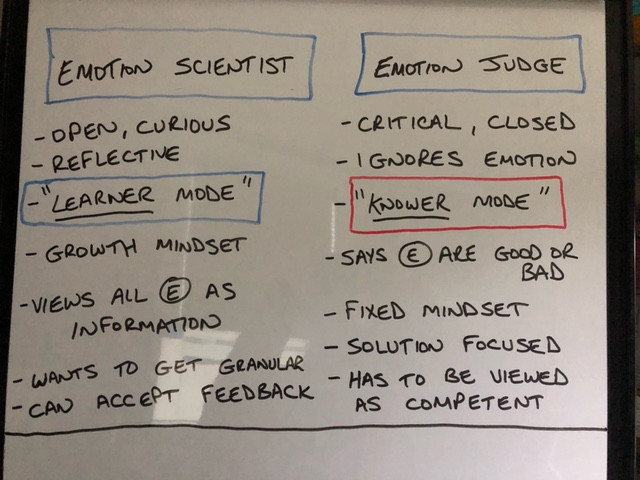 EMOTION SCIENTIST
- OPEN, CURIOUS
- REFLECTIVE
- "LEARNER MODE"
- GROWTH MINDSET
- VIEWS ALL Ⓔ AS
INFORMATION
- WANTS TO GET GRANULAR
- CAN ACCEPT FEEDBACK
EMOTION JUDGE
- CRITICAL, CLOSED
- IGNORES EMOTION
- "KNOWER MODE"
- SAYS Ⓔ ARE GOOD OR
BAD
- FIXED MINDSET
- SOLUTION FOCUSED
- HAS TO BE VIEWED
AS COMPETENT